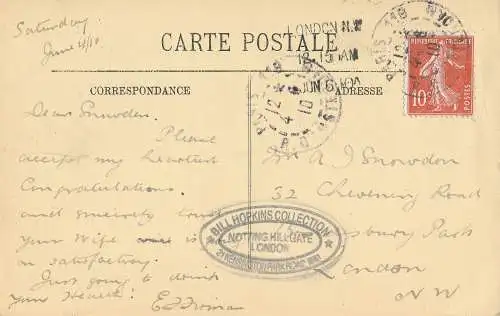 Saturday
June 4/10
CARTE POSTALE
CORRESPONDANCE
ADRESSE
LONDON N.W
12.15 AM
JUN 6 10
PARIS
12
4
10
REPUBLIQUE FRANÇAISE
10c
POSTES
Dear Snowdon.
Please
accept my heartiest
Congratulations.
and sincerely trust
your Wife is
in satisfactory.
Just going to drink
your Health.
Mr A J Snowdon
32 Chevening Road
London
NW
BILL HOPKINS COLLECTION
NOTTING HILL GATE
LONDON
KENSINGTON PARK ROAD W11